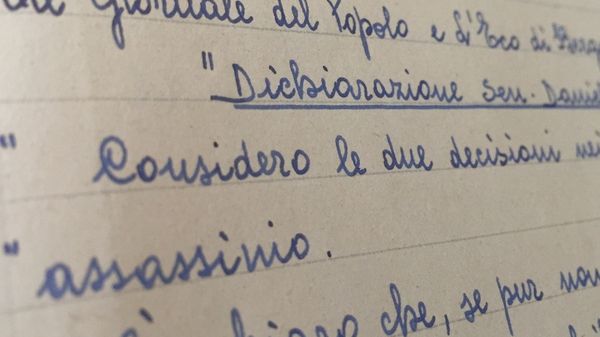 Giornale del Popolo e L'Eco di
" Dichiarazione Sen. Daniel
" Considero le due decisioni nei
" assassinio.
è chiaro che, se pur non